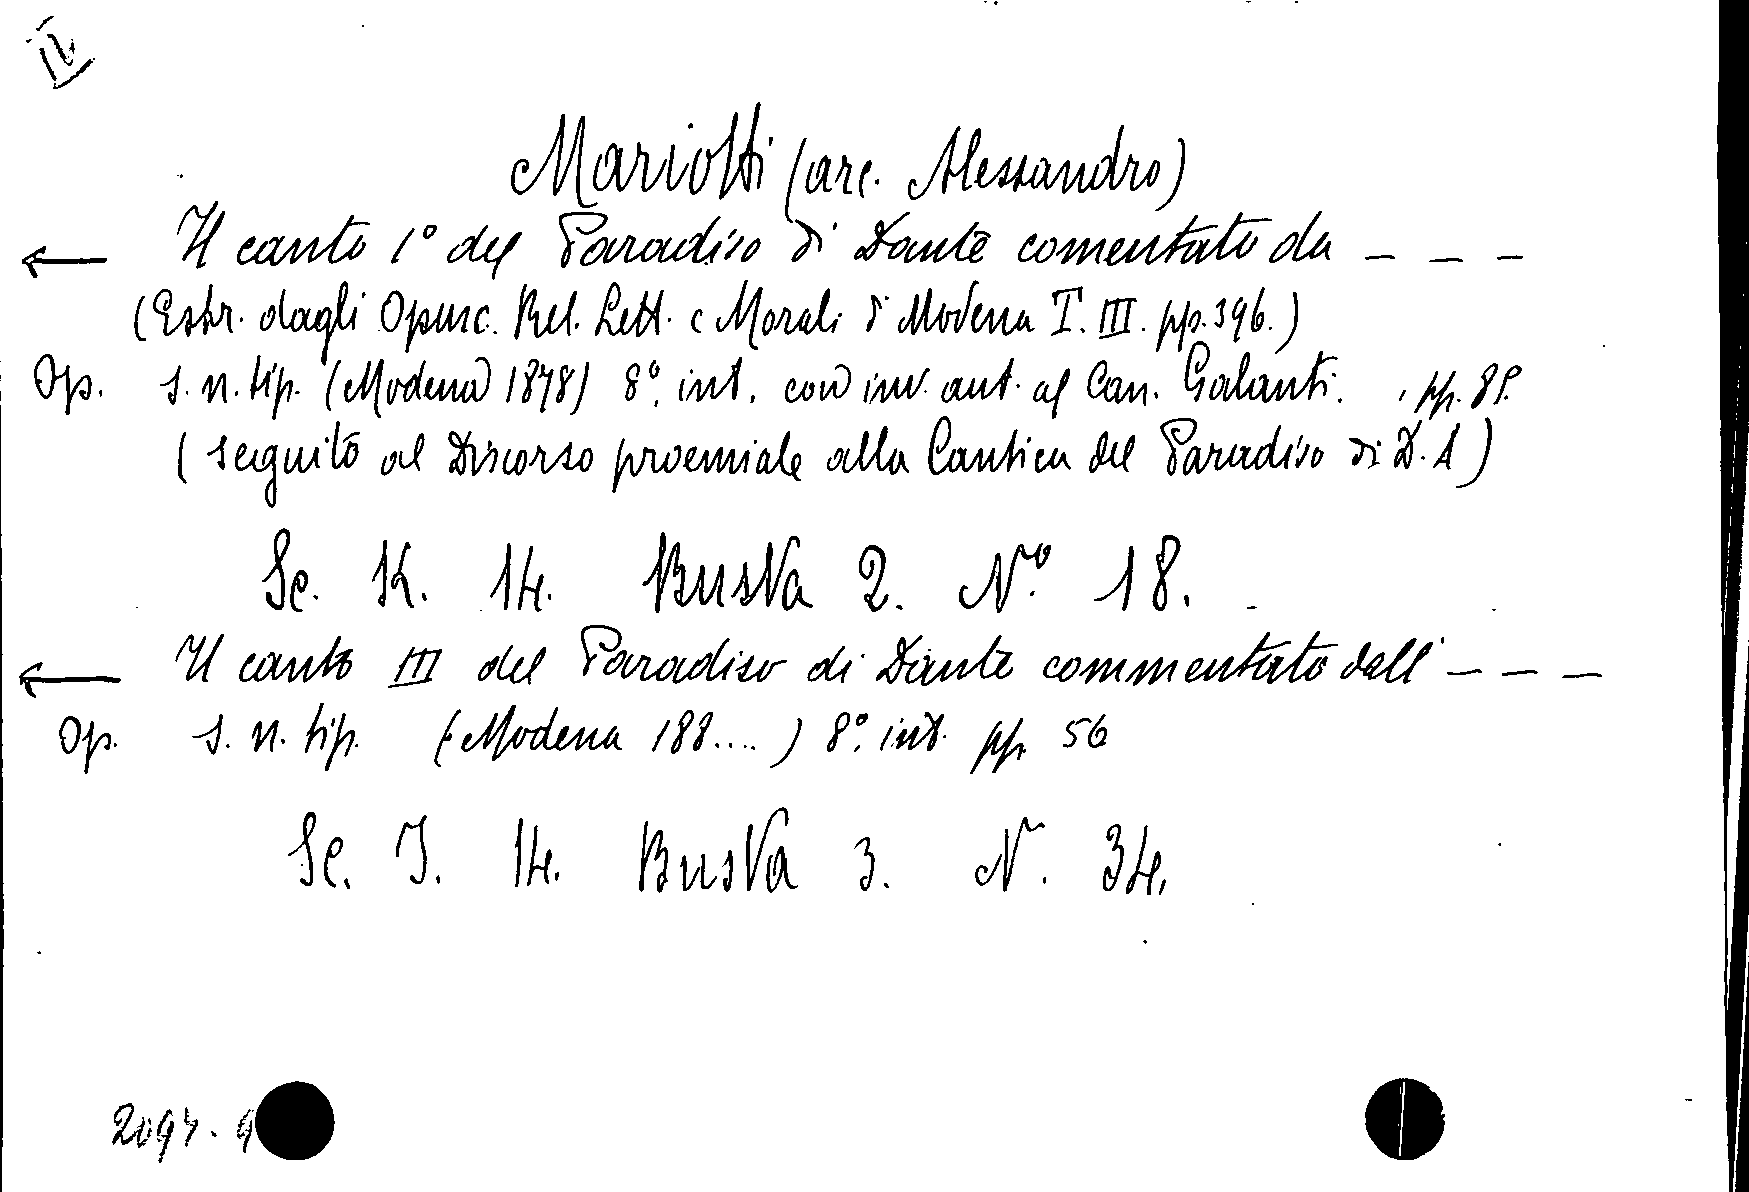 II
Mariotti (arc. Alessandro)
← Il canto 1° del Paradiso di Dante comentato da - - -
(Estr. dagli Opusc. Rel. Lett. e Morali di Modena T. III. pp. 396.)
Op. s. n. tip. (Modena 1878) 8°. int. con inv. aut. al Can. Galanti. pp. 81.
(seguito al Discorso proemiale alla Cantica del Paradiso di D. A)
Sc. K. 14. Busta 2. N° 18.
← Il canto III del Paradiso di Dante commentato dall' - - -
Op. s. n. tip. (Modena 188....) 8°. int. pp. 56
Sc. J. 14. Busta 3. N. 34.
2094. 9